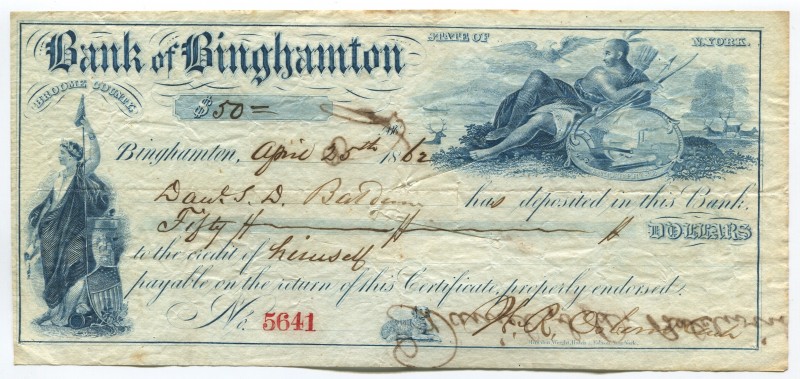 Bank of Binghamton
STATE OF N. YORK.
BROOME COUNTY
$ 50=
Binghamton, April 25th 1862
Danl. S. D. Baldwin has deposited in this Bank
Fifty DOLLARS
to the credit of himself
payable on the return of this Certificate, properly endorsed.
No. 5641